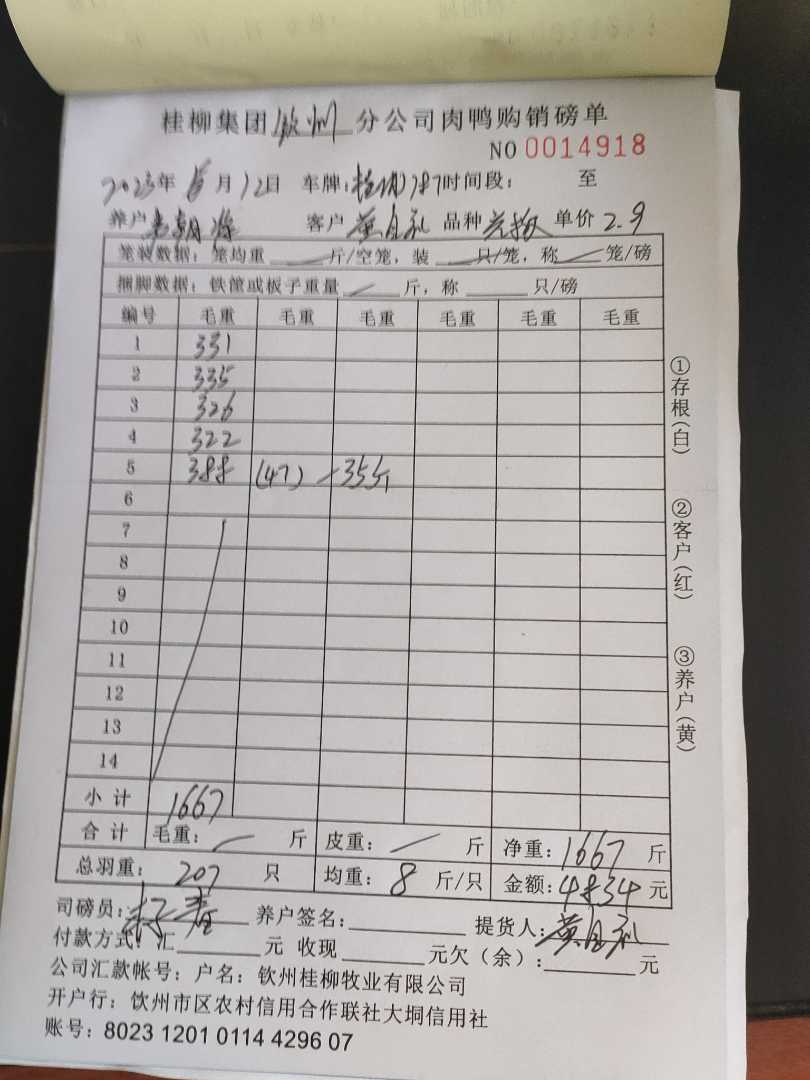 桂柳集团钦州分公司肉鸭购销磅单
NO 0014918
2023年6月12日 车牌: 787 时间段: 至
养户 客户 黄自礼 品种 单价 2.9
笼装数据: 笼均重 斤/空笼, 装 只/笼, 称 笼/磅
捆脚数据: 铁筐或板子重量 斤, 称 只/磅
编号 毛重 毛重 毛重 毛重 毛重 毛重
1 331
2 335
3 326
4 322
5 388 (47) -35斤
6
7
8
9
10
11
12
13
14
小计 1667
合计 毛重: 斤 皮重: 斤 净重: 1667 斤
总羽重: 207 只 均重: 8 斤/只 金额: 4834 元
司磅员: 养户签名: 提货人: 黄自礼
付款方式: 汇 元 收现 元欠(余): 元
公司汇款帐号: 户名: 钦州桂柳牧业有限公司
开户行: 钦州市区农村信用合作联社大垌信用社
账号: 8023 1201 0114 4296 07
①存根(白)
②客户(红)
③养户(黄)